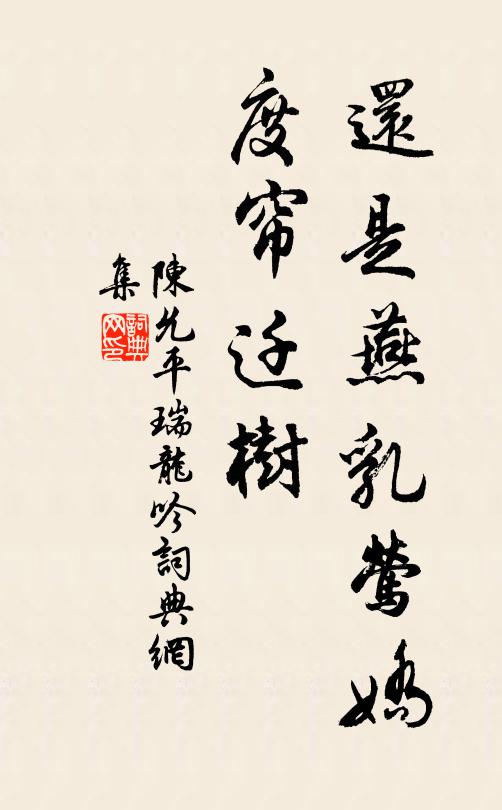 還是燕乳鶯嬌
度帘迁樹
陳允平瑞龍吟詞典網
集
詞典
网印